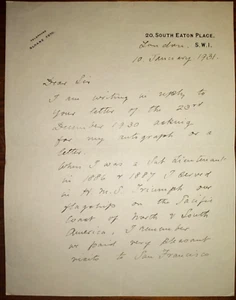 TELEPHONE
SLOANE
20, SOUTH EATON PLACE,
London. S.W.1.
10 January 1931.
Dear Sir
I am writing in reply to
your letter of the 23rd
December 1930 asking
for my autograph or a
letter.
When I was a Sub Lieutenant
in 1886 & 1887 I served
in H.M.S. Triumph our
flagship on the Pacific
Coast of North & South
America. I remember
we paid very pleasant
visits to San Francisco